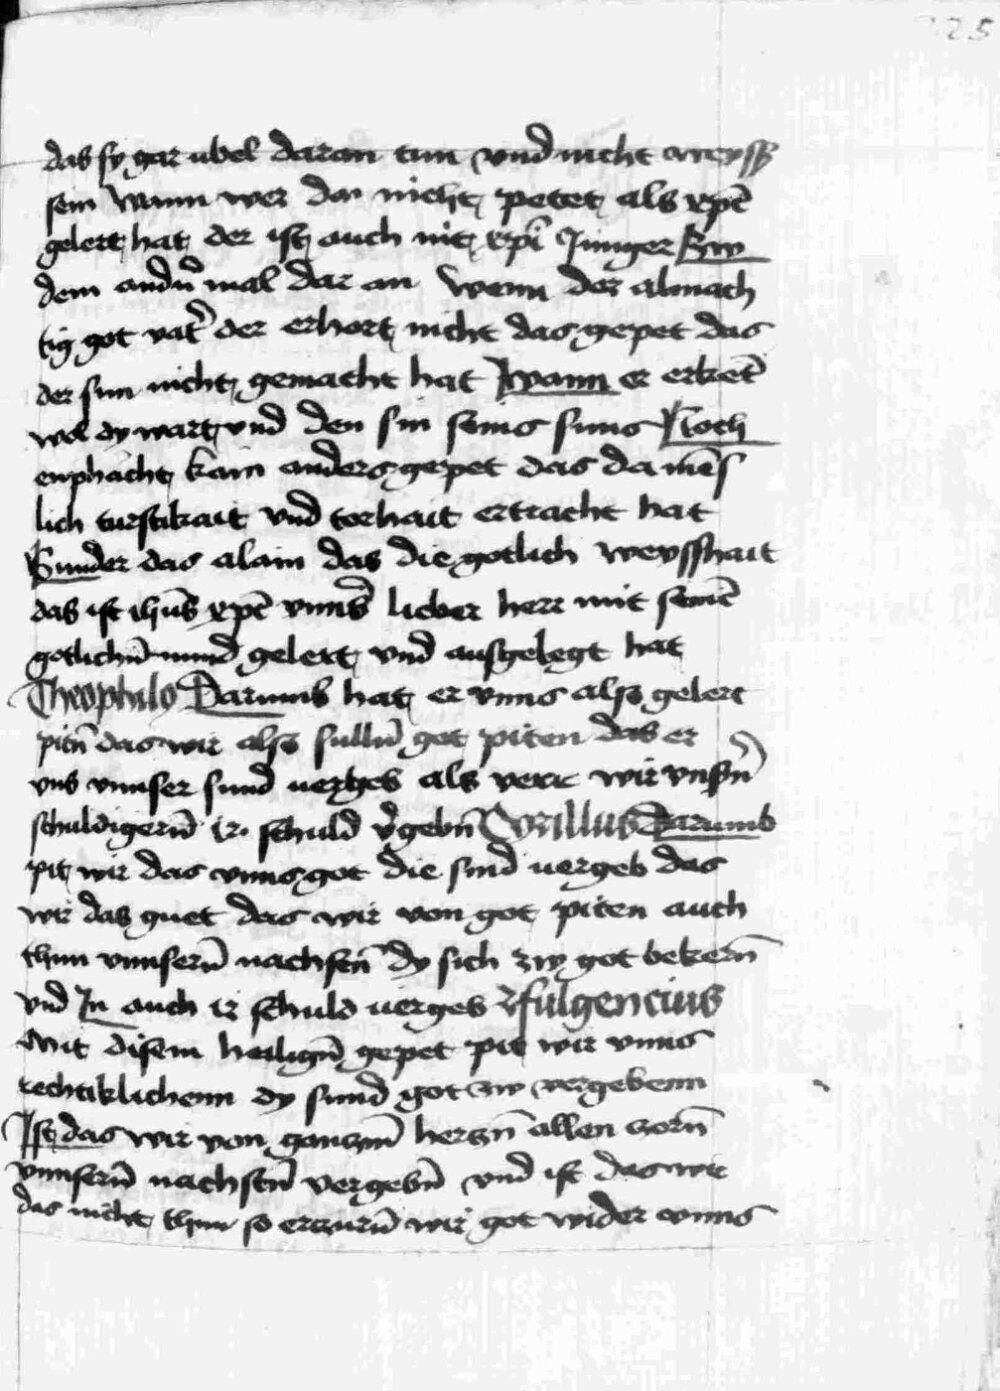 25
das sy gar ubel daran tun vnd nicht weyss
sein Wann wer do nicht petet als xp̄c
gelert hat der ist auch nit xp̄i Junger Zw
dem andn̄ mal dar an Wenn der almach
tig got vat̄ der erhort nicht das gepet das
der sun nicht gemacht hat Wann er erket̄
wol dy wart vnd den sin seins suns Noch
enphächt kain anders gepet das da mēs
lich turstikait vnd torhait ertracht hat
Sunder das alain das die gotlich weysshait
das ist ihūs xp̄c vnns̄ lieber herr mit seinē
gotlichn̄ mund gelert vnd ausgelegt hat
Theophilo Darumb hat er vnns also gelert
pitn̄ das wir also sulln̄ got piten das er
vns vnnser sund vergeb als verr wir vnsn̄
schuldigern̄ ir schuld v̄gebn̄ Cyrillus Darumb
pit wir das vnns got die sind vergeb das
wir das guet das wir von got piten auch
thun vnnsern̄ nachstn̄ dy sich zw got bekern̄
vnd In auch ir schuld vergeb fulgencius
Mit disem heilign̄ gepet pit wir vnns
rechtiklichenn dy sund got zw vergebenn
Ist das wir von ganczm̄ herczn̄ allen zorn̄
vnnsern̄ nachstn̄ vergebn̄ vnd ist das wir
das nicht thun so erzurn̄ wir got wider vnns